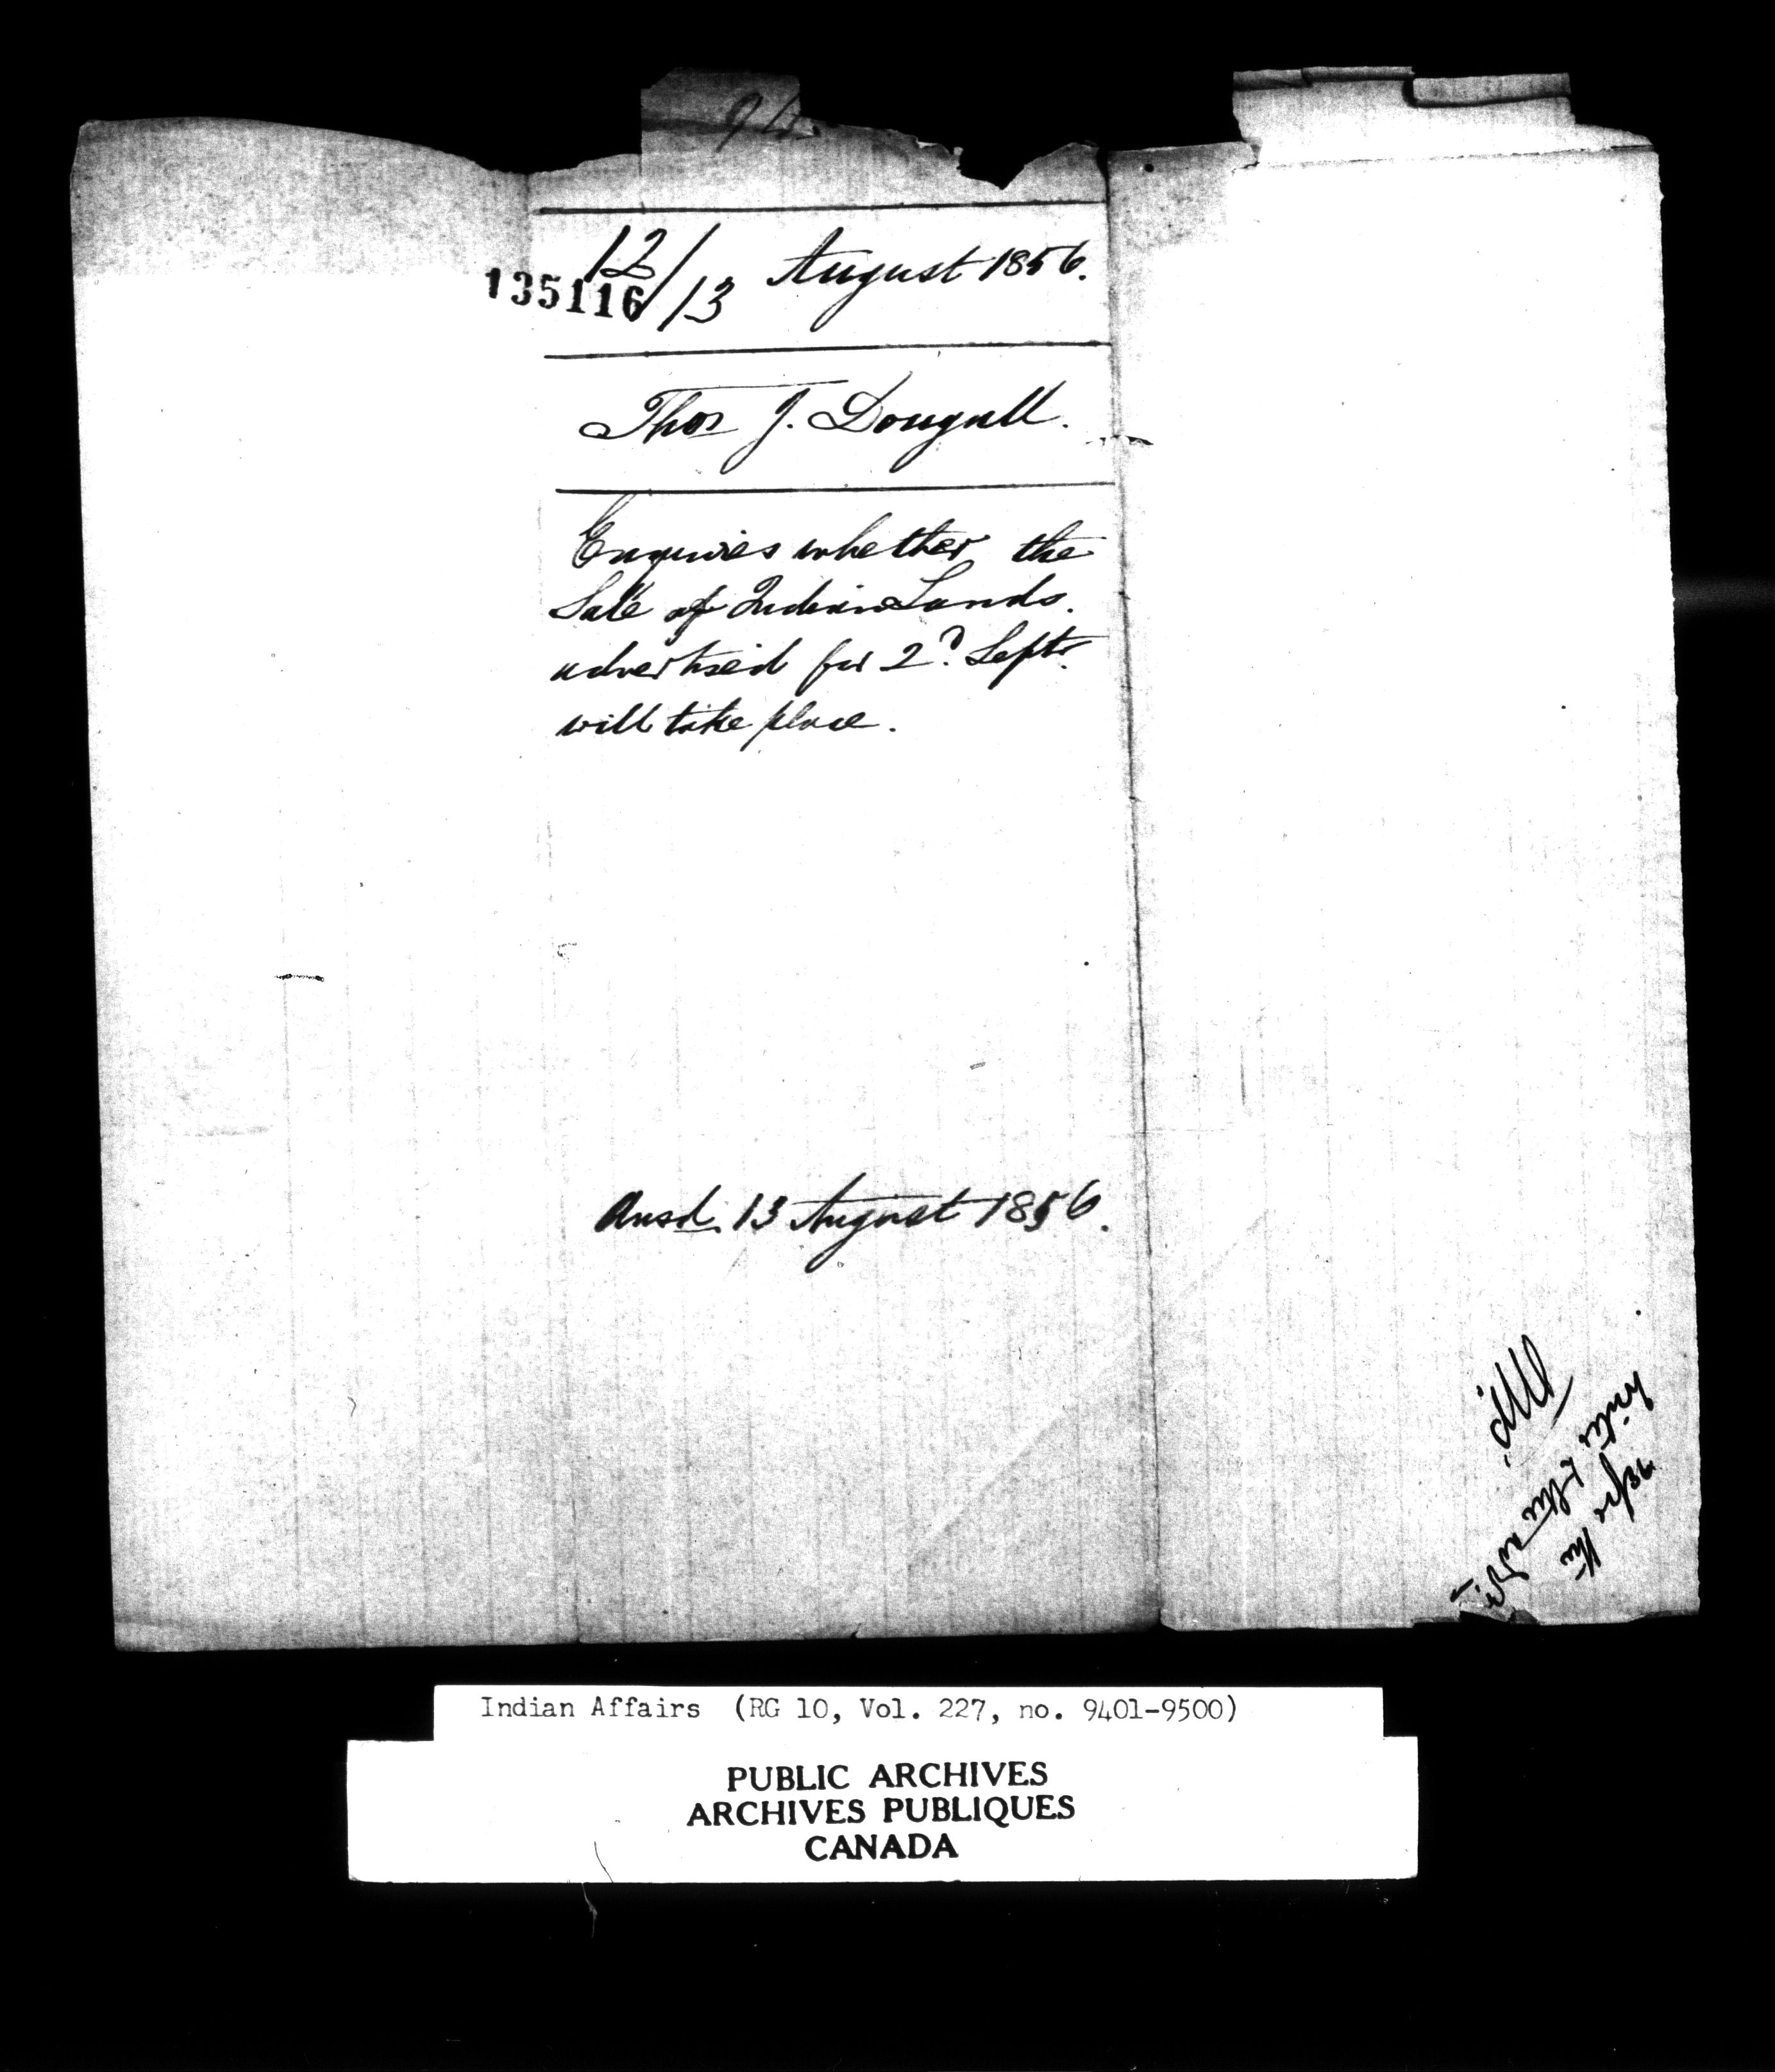 94
12/13 August 1856.
135116
Thos J. Dougall.
Enquires whether the
Sale of Indian Lands.
advertised for 2d. Septr.
will take place.
Ansd. 13 August 1856.
Indian Affairs (RG 10, Vol. 227, no. 9401-9500)
PUBLIC ARCHIVES
ARCHIVES PUBLIQUES
CANADA